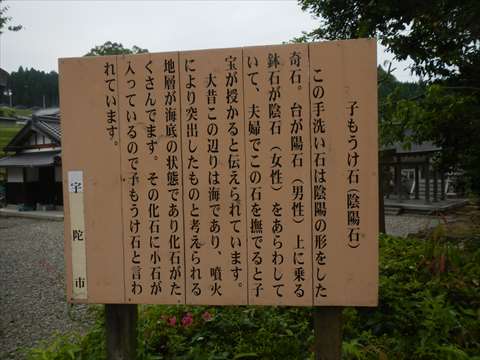 子もうけ石(陰陽石)
この手洗い石は陰陽の形をした
奇石。台が陽石(男性)上に乗る
鉢石が陰石(女性)をあらわして
いて、夫婦でこの石を撫でると子
宝が授かると伝えられています。
大昔この辺りは海であり、噴火
により突出したものと考えられる
地層が海底の状態であり化石がた
くさんでます。その化石に小石が
入っているので子もうけ石と言わ
れています。
宇陀市